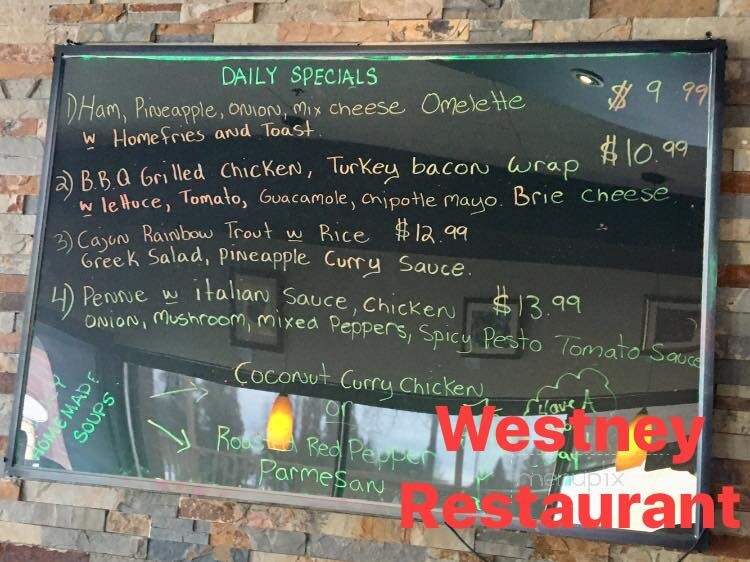 DAILY SPECIALS
1) Ham, Pineapple, onion, mix cheese Omelette $9 99
w Homefries and Toast.
2) B.B.Q Grilled Chicken, Turkey bacon wrap $10.99
w lettuce, Tomato, Guacamole, chipotle mayo. Brie cheese.
3) Cajun Rainbow Trout w Rice $12.99
Greek Salad, Pineapple Curry Sauce.
4) Penne w italian Sauce, Chicken $13.99
onion, mushroom, mixed Peppers, Spicy Pesto Tomato Sauce
HOMEMADE SOUPS
Coconut Curry Chicken
or
Roasted Red Pepper
Parmesan
Have A
Westney
Restaurant
menupix